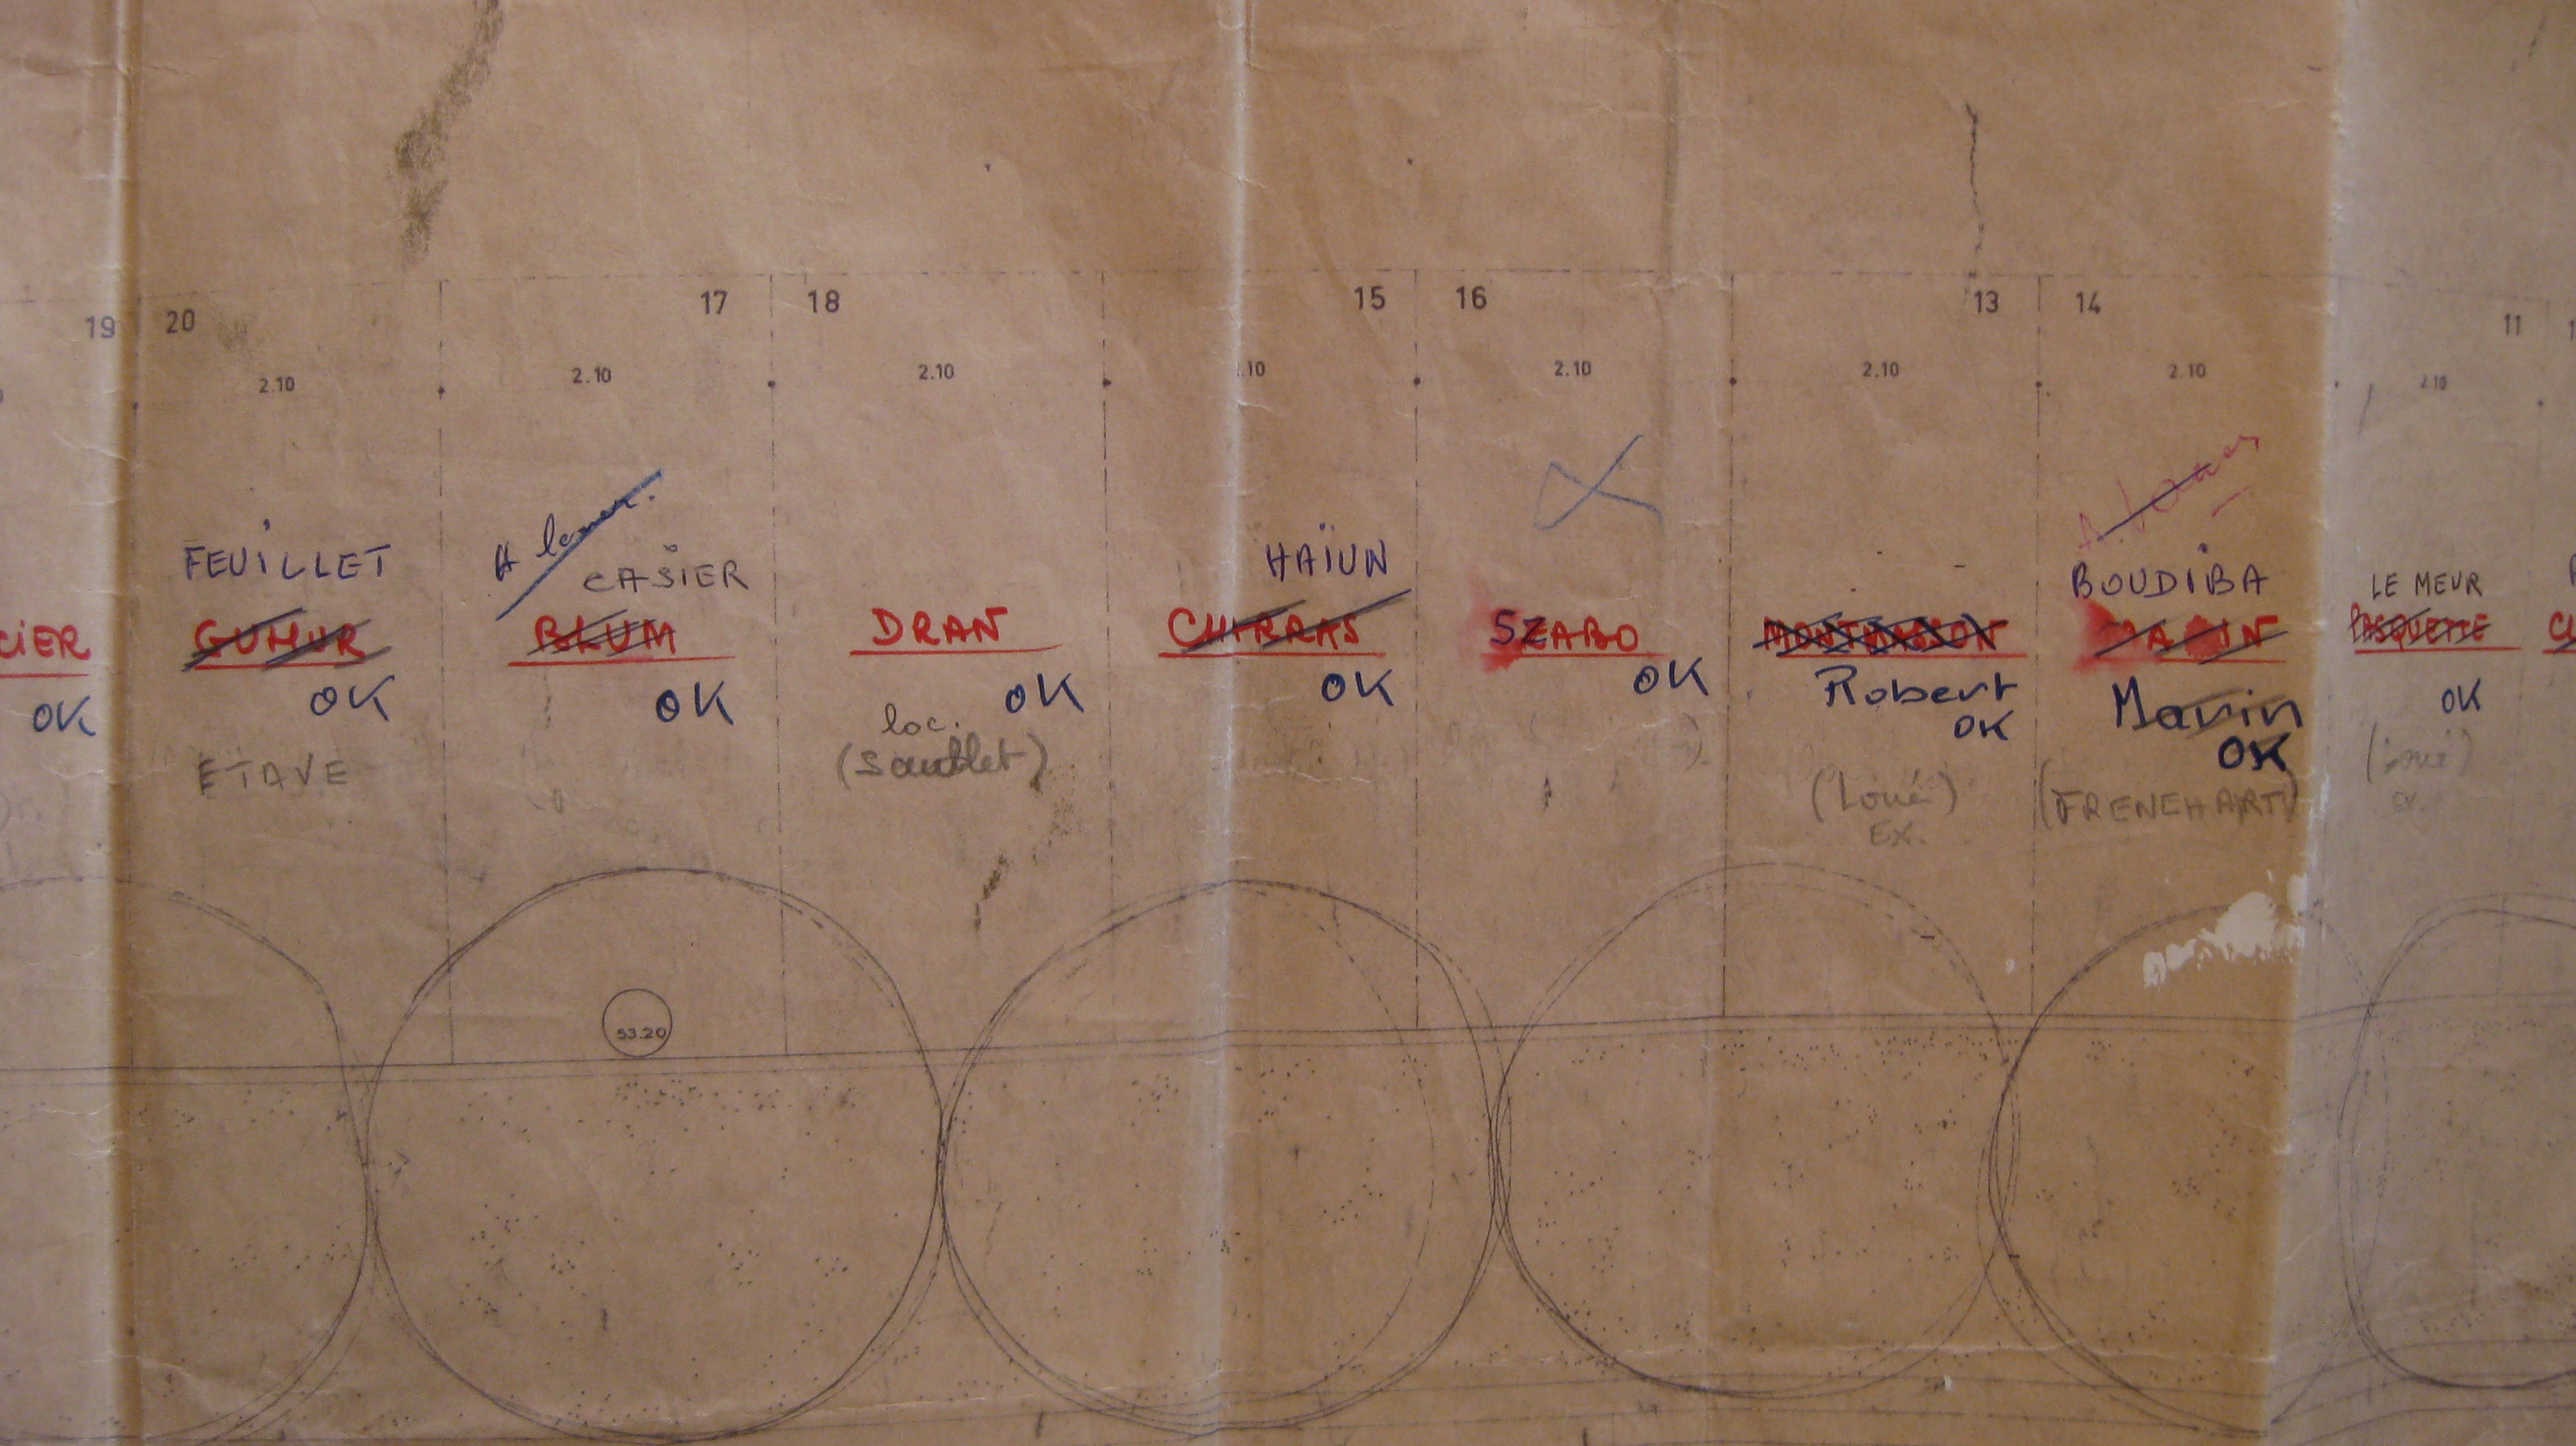 19 20 17 18 15 16 13 14 11
2.10 2.10 2.10 .10 2.10 2.10 2.10 2.10
A louer.
FEUILLET CASIER HAÏUN BOUDIBA LE MEUR
CIER GUMUR BLUM DRAN CHIRRAS SZABO MARIN PASQUETTE
OK OK OK OK OK OK Robert Marin OK
OK OK
loc.
ETAVE (Sautlet) (Loué) (FRENEHART) (Loué)
EX. EX.
53.20